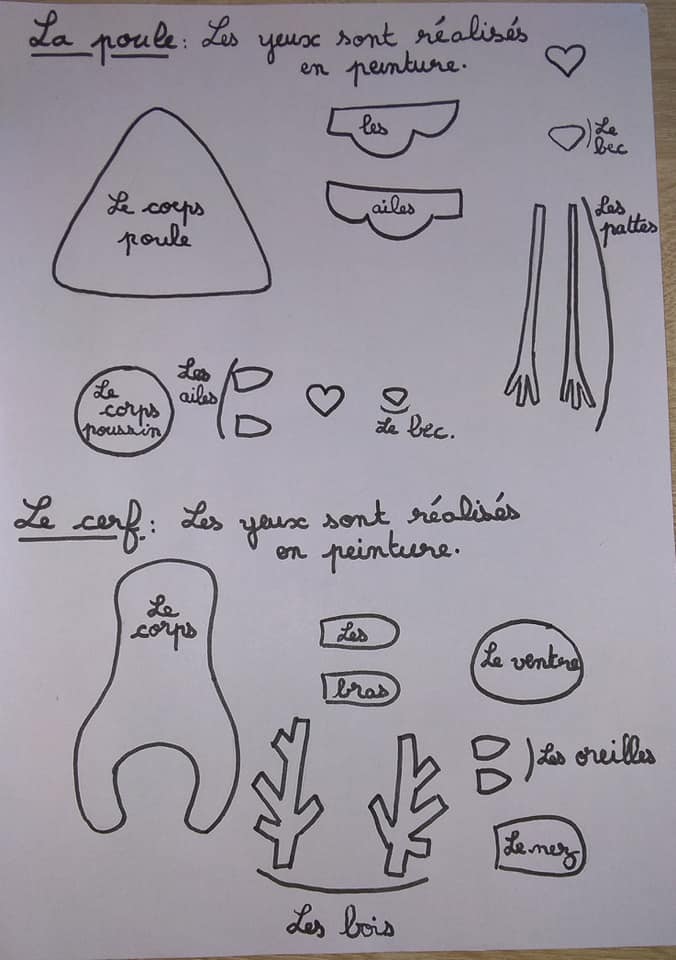 La poule: Les yeux sont réalisés
en peinture.
les
ailes
Le
bec
Le corps
poule
Les
pattes
Le
corps
poussin
Les
ailes
Le bec.
Le cerf: Les yeux sont réalisés
en peinture.
Le
corps
Les
bras
Le ventre
Les oreilles
Le nez
Les bois